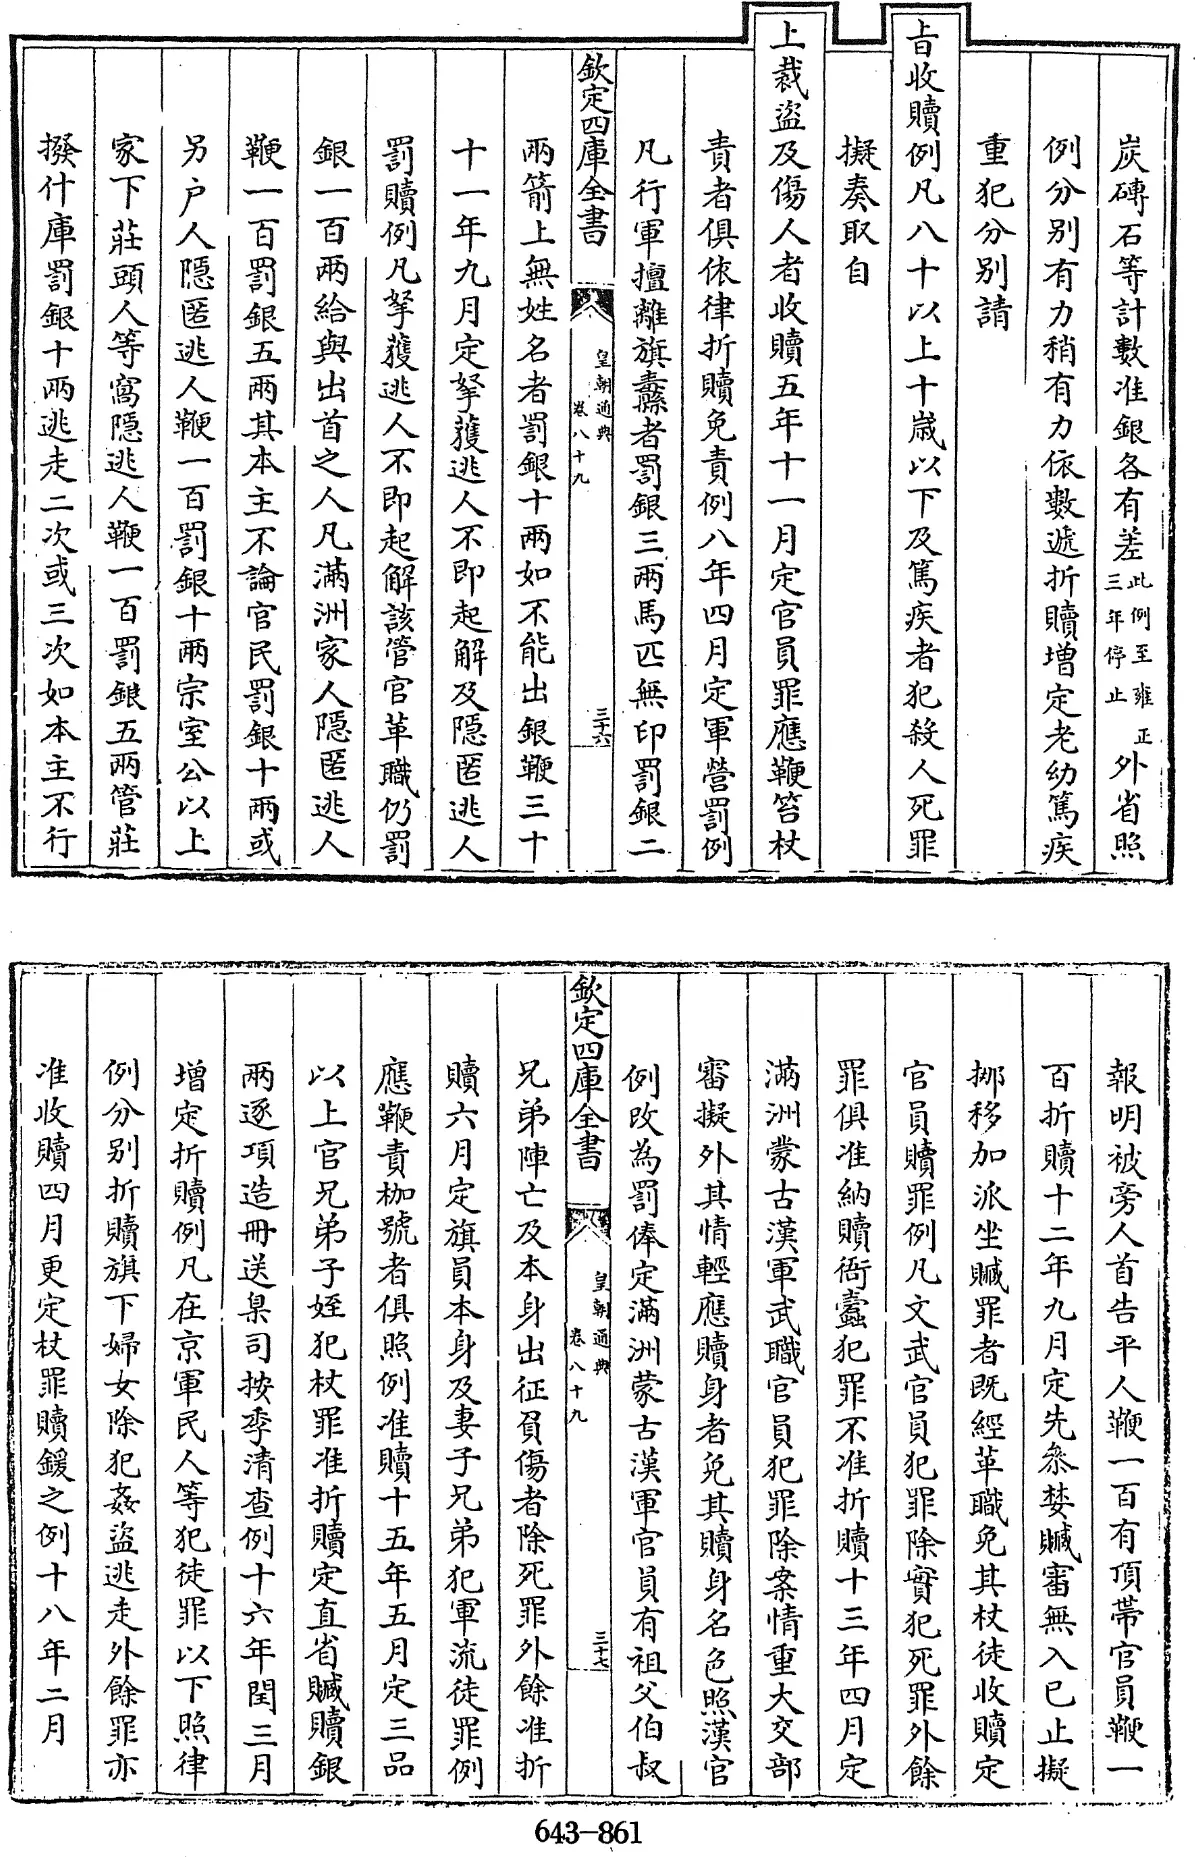 炭磚石等計數准銀各有差此例至雍正三年停止外省照
例分别有力稍有力依數遞折贖增定老幼篤疾
重犯分别請
旨收贖例凡八十以上十歲以下及篤疾者犯殺人死罪
擬奏取自
上裁盜及傷人者收贖五年十一月定官員罪應鞭笞杖
責者俱依律折贖免責例八年四月定軍營罰例
凡行軍擅離旗纛者罰銀三兩馬匹無印罰銀二
欽定四庫全書
皇朝通典
卷八十九
三十六
兩箭上無姓名者罰銀十兩如不能出銀鞭三十
十一年九月定拏獲逃人不即起解及隱匿逃人
罰贖例凡拏獲逃人不即起解該管官革職仍罰
銀一百兩給與出首之人凡滿洲家人隱匿逃人
鞭一百罰銀五兩其本主不論官民罰銀十兩或
另户人隱匿逃人鞭一百罰銀十兩宗室公以上
家下莊頭人等窩隱逃人鞭一百罰銀五兩管莊
撥什庫罰銀十兩逃走二次或三次如本主不行
報明被旁人首告平人鞭一百有頂帶官員鞭一
百折贖十二年九月定先叅婪贓審無入已止擬
挪移加派坐贓罪者既經革職免其杖徒收贖定
官員贖罪例凡文武官員犯罪除實犯死罪外餘
罪俱准納贖衙蠹犯罪不准折贖十三年四月定
滿洲蒙古漢軍武職官員犯罪除案情重大交部
審擬外其情輕應贖身者免其贖身名色照漢官
例改為罰俸定滿洲蒙古漢軍官員有祖父伯叔
欽定四庫全書
皇朝通典
卷八十九
三十七
兄弟陣亡及本身出征負傷者除死罪外餘准折
贖六月定旗員本身及妻子兄弟犯軍流徒罪例
應鞭責枷號者俱照例准贖十五年五月定三品
以上官兄弟子姪犯杖罪准折贖定直省贓贖銀
兩逐項造冊送臬司按季清查例十六年閏三月
增定折贖例凡在京軍民人等犯徒罪以下照律
例分别折贖旗下婦女除犯姦盜逃走外餘罪亦
准收贖四月更定杖罪贖鍰之例十八年二月
643-861